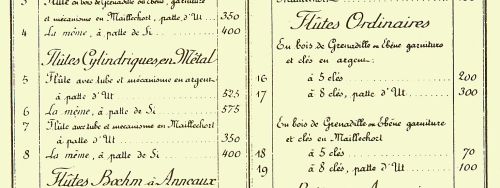 3 Flûte en bois de Grenadille ou Ebène, garniture
et mécanisme en Maillechort, patte d'Ut 350
4 La même, à patte de Si 400
Flûtes Cylindriques, en Métal
5 Flûte avec tube et mécanisme en argent
à patte d'Ut 525
6 La même, à patte de Si 575
7 Flûte avec tube et mécanisme en Maillechort
à patte d'Ut 350
8 La même, à patte de Si 400
Flûtes Bœhm à Anneaux
Flûtes Ordinaires
En bois de Grenadille ou Ebène garniture
et clés en argent:
16 à 5 clés 200
17 à 8 clés, patte d'Ut 300
En bois de Grenadille ou Ebène garniture
et clés en Maillechort
18 à 5 clés 70
19 à 8 clés, patte d'Ut 100